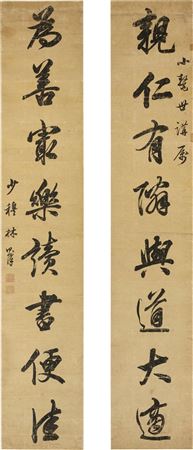 小鼇世講屬
親仁有隣與道大適
為善最樂讀書便佳
少穆林則徐